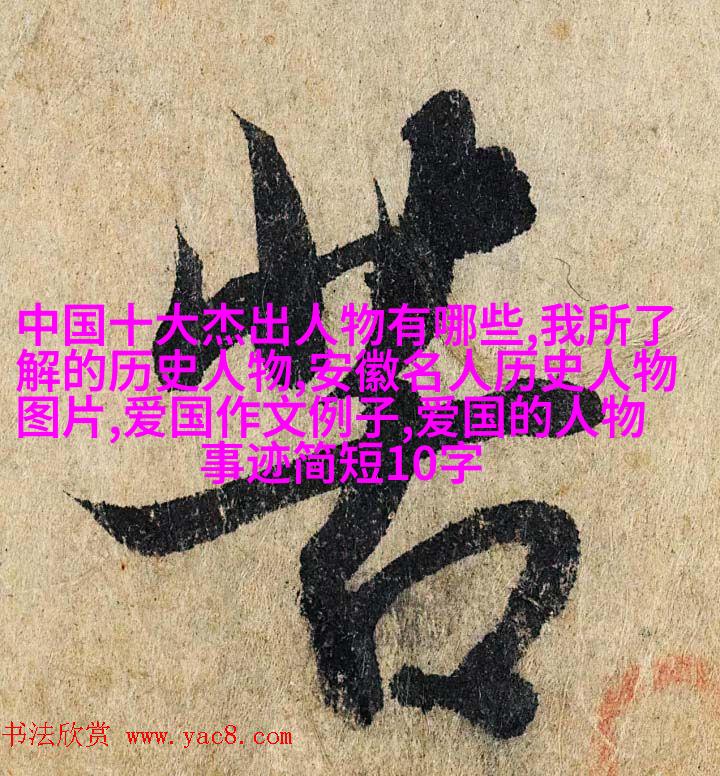 苦
中国十大杰出人物有哪些,我所了
解的历史人物,安徽名人历史人物
图片,爱国作文例子,爱国的人物
事迹简短10字
书法欣赏 www.yac8.com